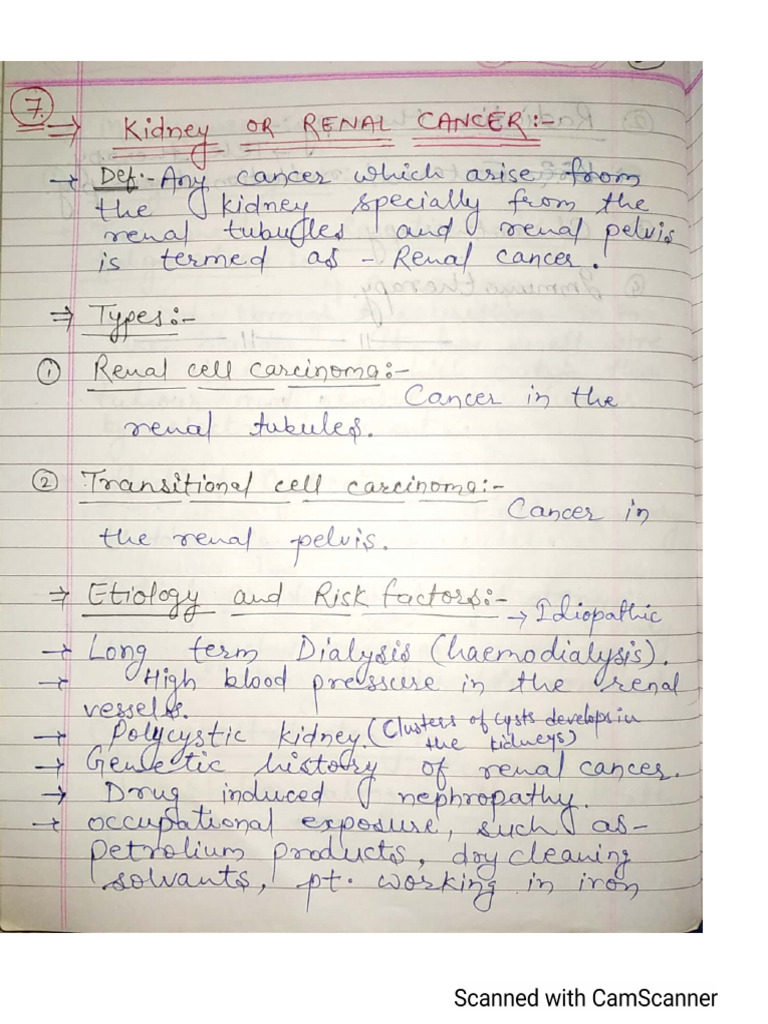 7.
⇒ Kidney OR RENAL CANCER:-
→ Def:- Any cancer which arise from
the kidney specially from the
renal tubules and renal pelvis
is termed as - Renal cancer.
⇒ Types:-
① Renal cell carcinoma:-
Cancer in the
renal tubules.
② Transitional cell carcinoma:-
Cancer in
the renal pelvis.
⇒ Etiology and Risk factors:-
→ Idiopathic
→ Long term Dialysis (haemodialysis).
→ High blood pressure in the renal
vessels.
→ Polycystic kidney. (Clusters of cysts develops in
the kidneys)
→ Genetic history of renal cancer.
→ Drug induced nephropathy.
→ occupational exposure, such as-
petrolium products, dry cleaning
solvants, pt. working in iron
Scanned with CamScanner